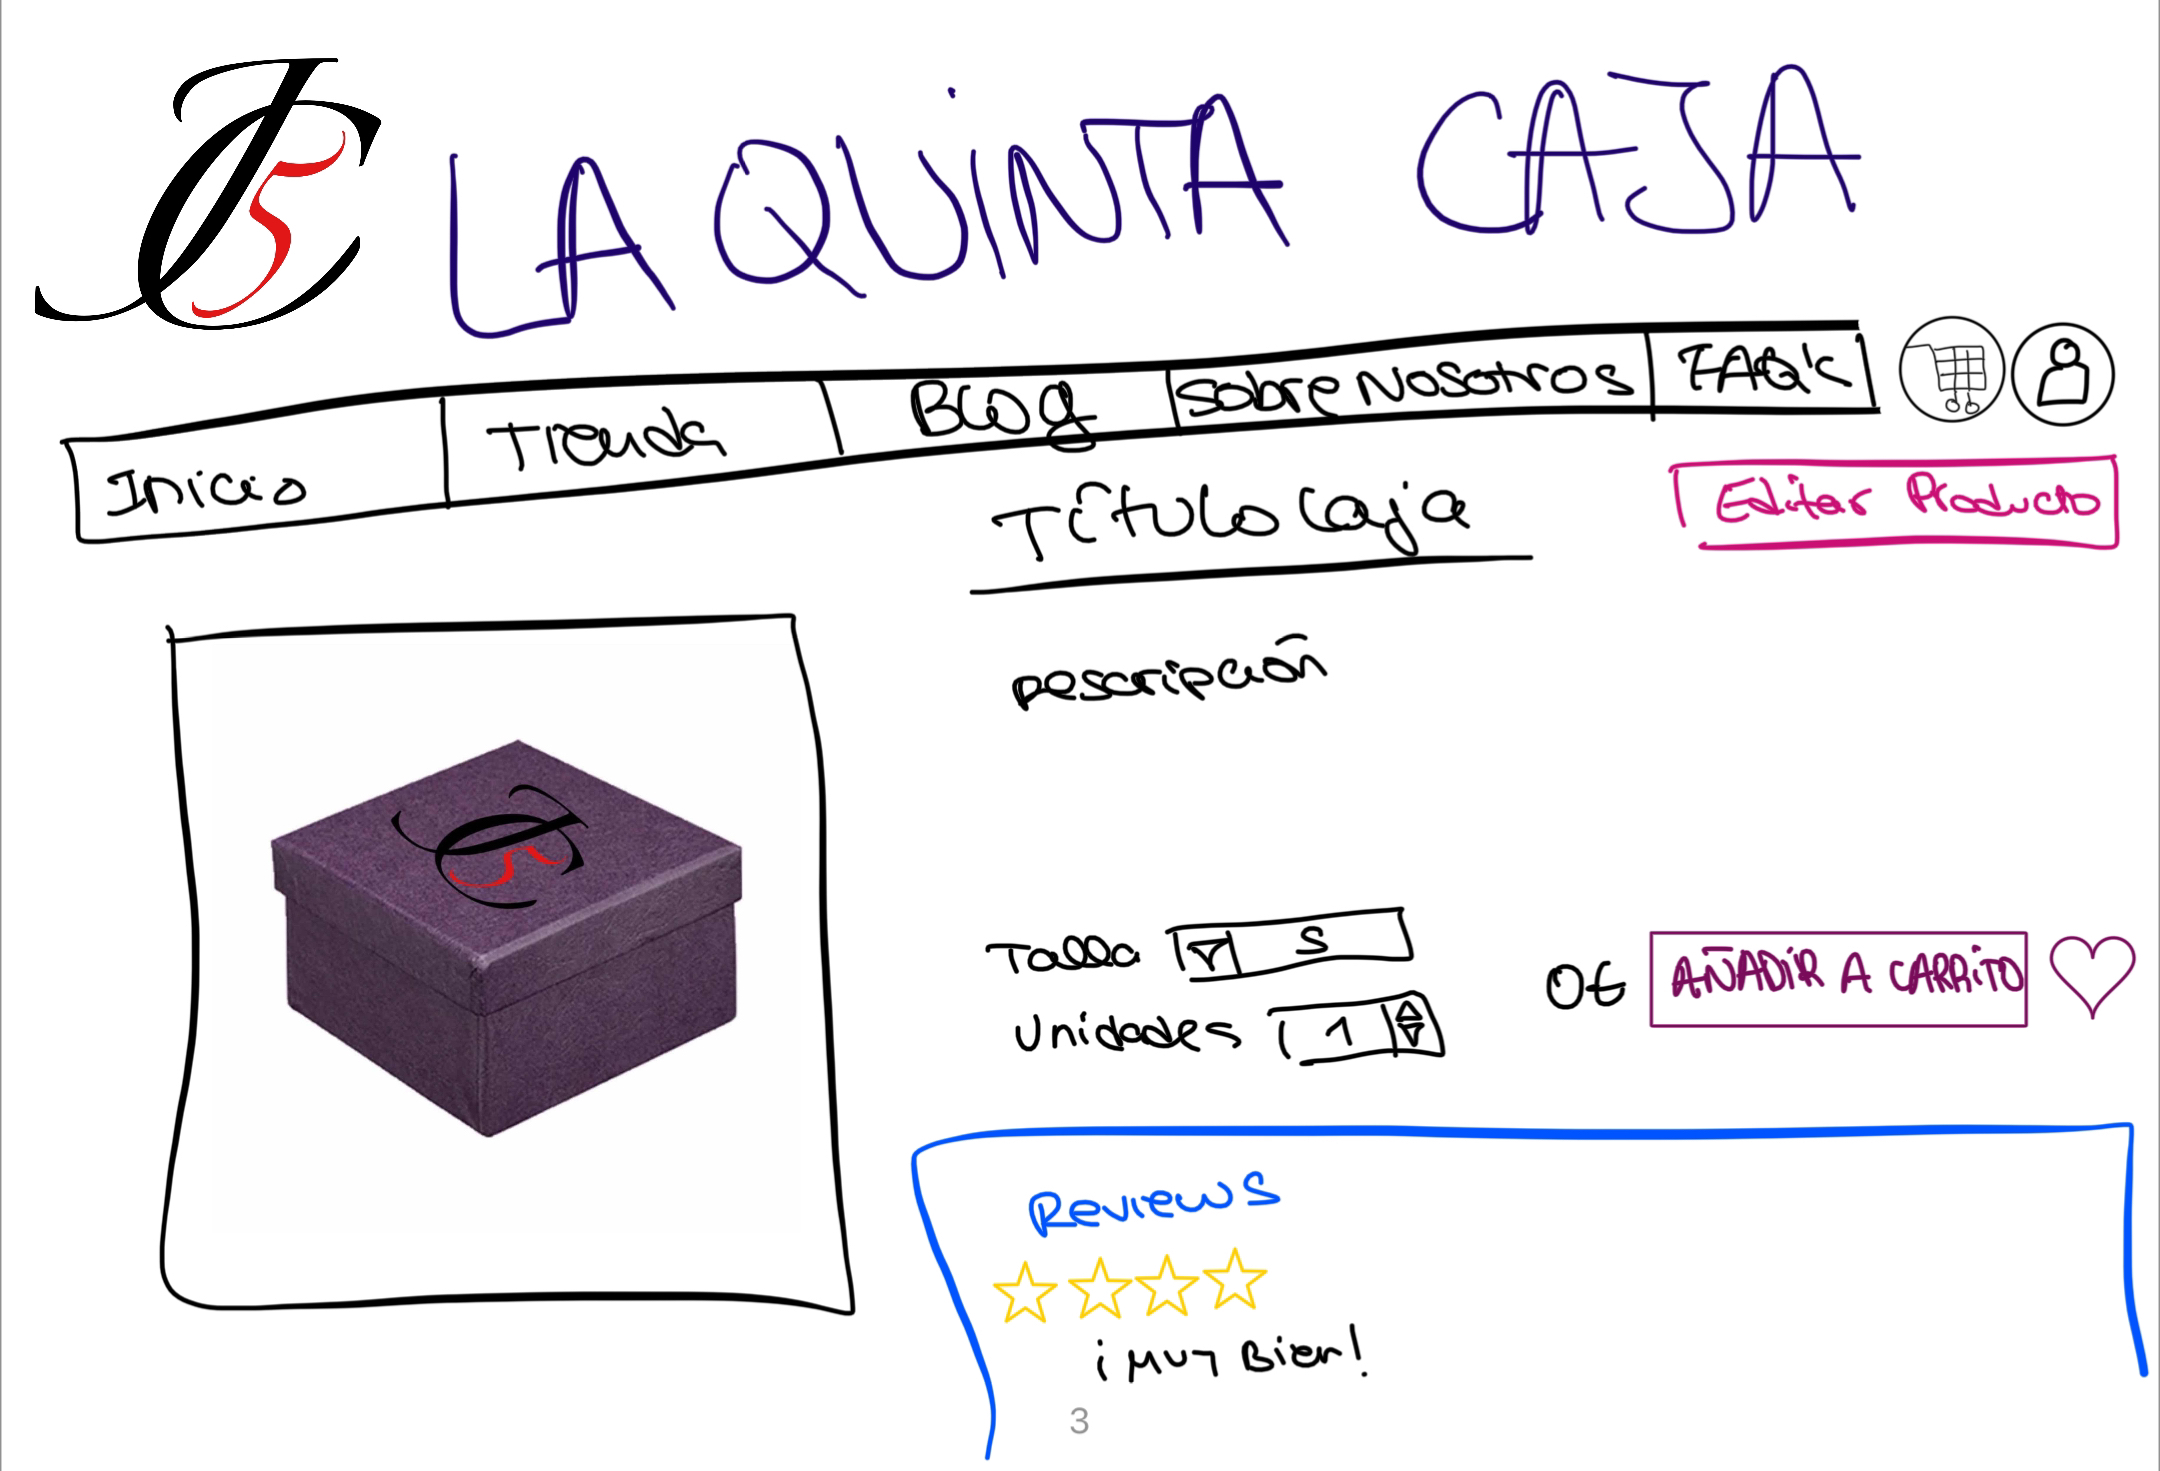 LA QUINTA CAJA
Inicio
Tienda
Blog
Sobre Nosotros
FAQ's
Título Caja
Editar Producto
Descripción
Talla S
Unidades 1
0€
AÑADIR A CARRITO
Reviews
¡MUY Bien!
3